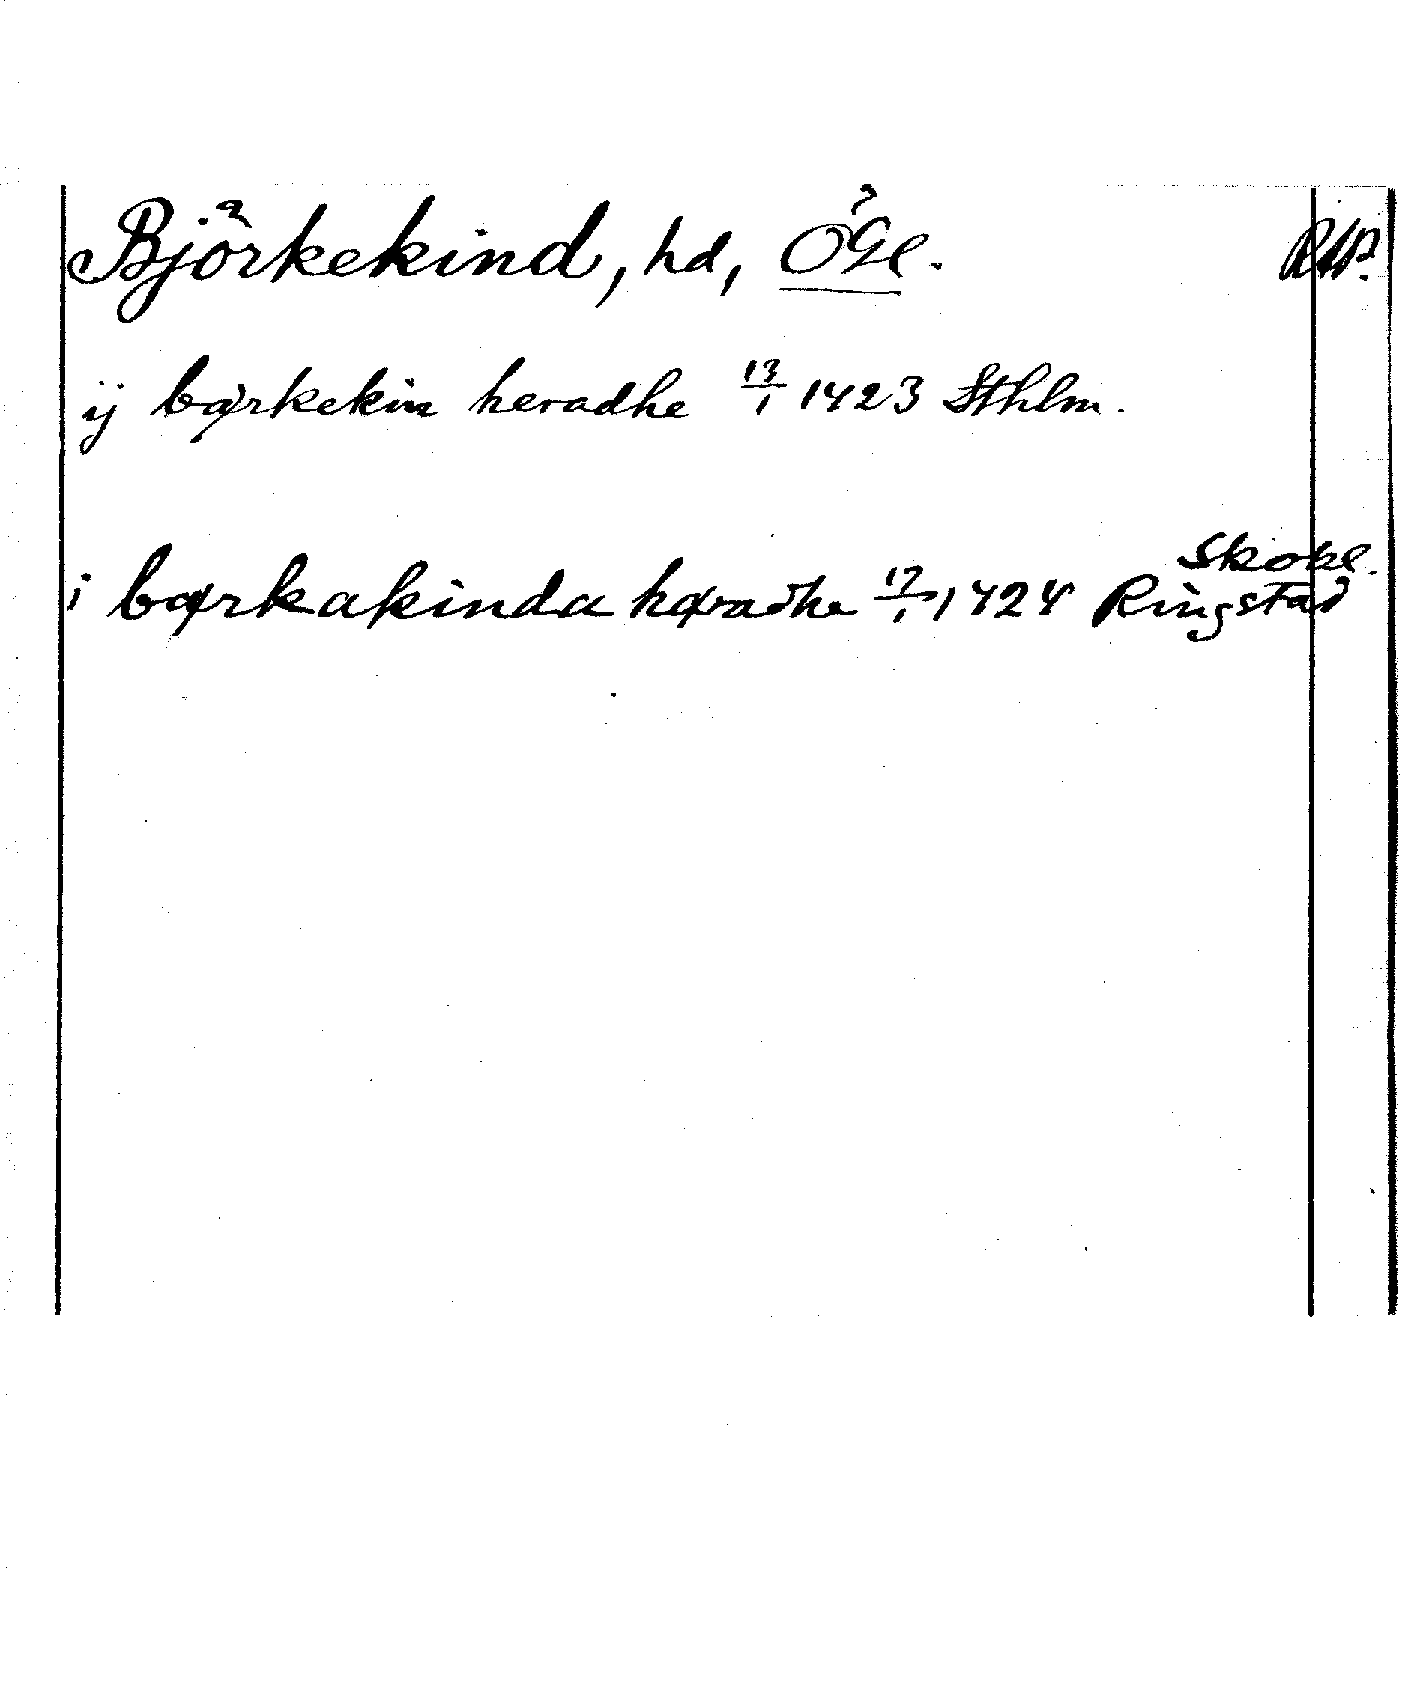 Björkekind, hd, ÖGl.
ij bærkekin heradhe 13/1 1423 Sthlm.
Skokl.
i bærkakinda hæradhe 17/1 1424 Ringstad